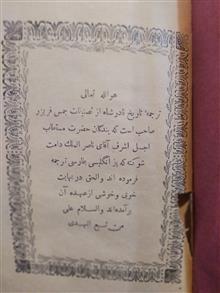 هو الله تعالی
ترجمهٔ تاریخ نادرشاه از تصنیفات جمس فریزر
صاحب است که بندگان حضرت مستطاب
اجمل اشرف آقای ناصر الملک دامت
شوکته که از انگلیسی بفارسی ترجمه
فرموده اند والحق در نهایت
خوبی و خوشی از عهدهٔ آن
برآمده‌اند والسلام علی
من تبع الهدی